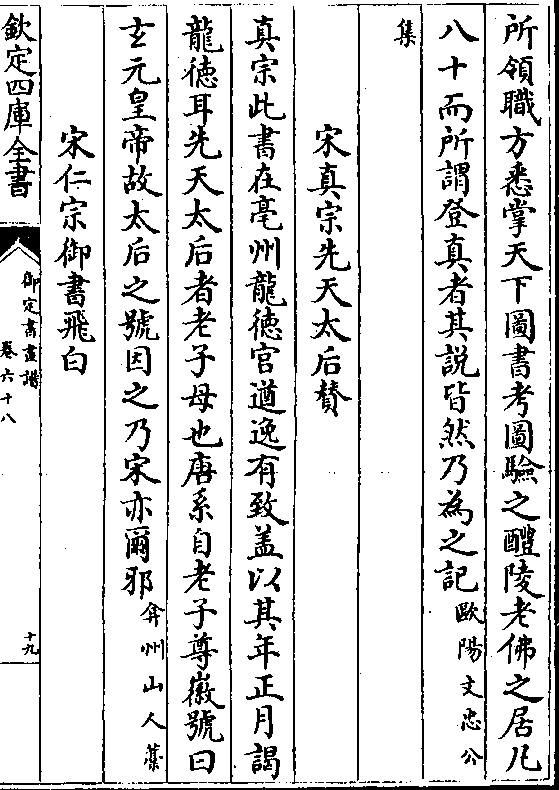 所領職方悉掌天下圖書考圖驗之醴陵老佛之居凡
八十而所謂登真者其説皆然乃為之記歐陽文忠公
集
宋真宗先天太后賛
真宗此書在亳州龍徳宫遒逸有致盖以其年正月謁
龍徳耳先天太后者老子母也唐系自老子尊徽號曰
玄元皇帝故太后之號因之乃宋亦爾邪弇州山人藁
宋仁宗御書飛白
欽定四庫全書
御定書畫譜
卷六十八
十九